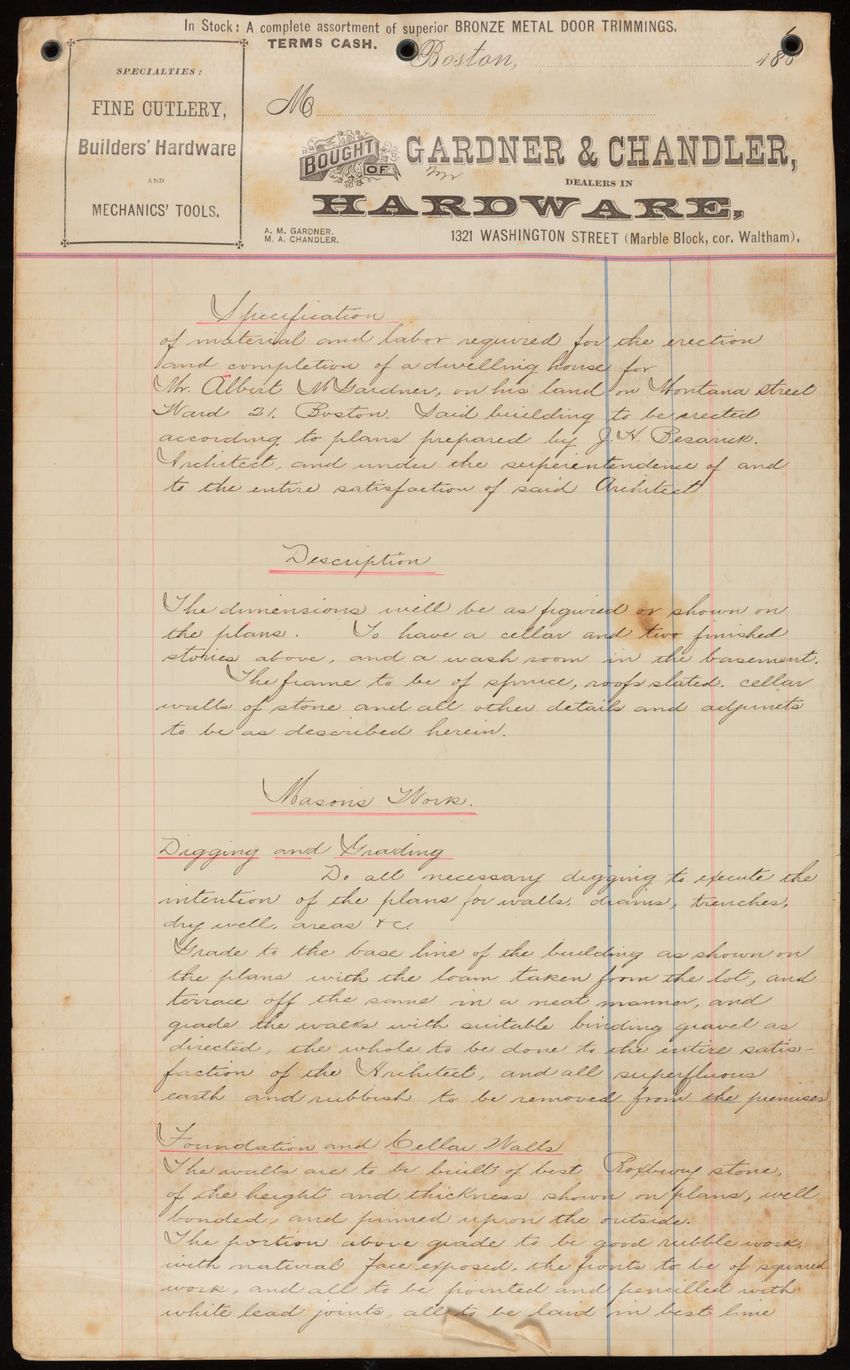 In Stock: A complete assortment of superior BRONZE METAL DOOR TRIMMINGS.
TERMS CASH.
Boston, 188
SPECIALTIES:
FINE CUTLERY,
Builders' Hardware
AND
MECHANICS' TOOLS.
M
BOUGHT OF GARDNER & CHANDLER,
DEALERS IN
HARDWARE,
A. M. GARDNER.
M. A. CHANDLER.
1321 WASHINGTON STREET (Marble Block, cor. Waltham).
Specification
of material and labor required for the erection
and completion of a dwelling house for
Mr. Albert M Gardner, on his land on Montana Street
Ward 21. Boston. Said building to be erected
according to plans prepared by J. H. Besarick.
Architect, and under the superentendence of and
to the entire satisfaction of said Architect
Description
The dimensions will be as figured or shown on
the plans. To have a cellar and two finished
stories above, and a wash room in the basement.
The frame to be of spruce, roofs slated. cellar
walls of stone and all other details and adjuncts
to be as described herein.
Mason's Work.
Digging and Grading
Do all necessary digging to execute the
intention of the plans for walls, drains, trenches,
dry well, areas &c.
Grade to the base line of the building as shown on
the plans with the loam taken from the lot, and
terrace off the same in a neat manner, and
grade the walks with suitable binding gravel as
directed, the whole to be done to the entire satis-
faction of the Architect, and all superfluous
earth and rubbish to be removed from the premises
Foundation and Cellar Walls
The walls are to be built of best Roxbury stone,
of the height and thickness shown on plans, well
bonded, and pinned up on the outside.
The portion above grade to be good rubble work,
with natural face exposed, the fronts to be of squared
work, and all to be pointed and pencilled with
white lead joints, all to be laid in best lime